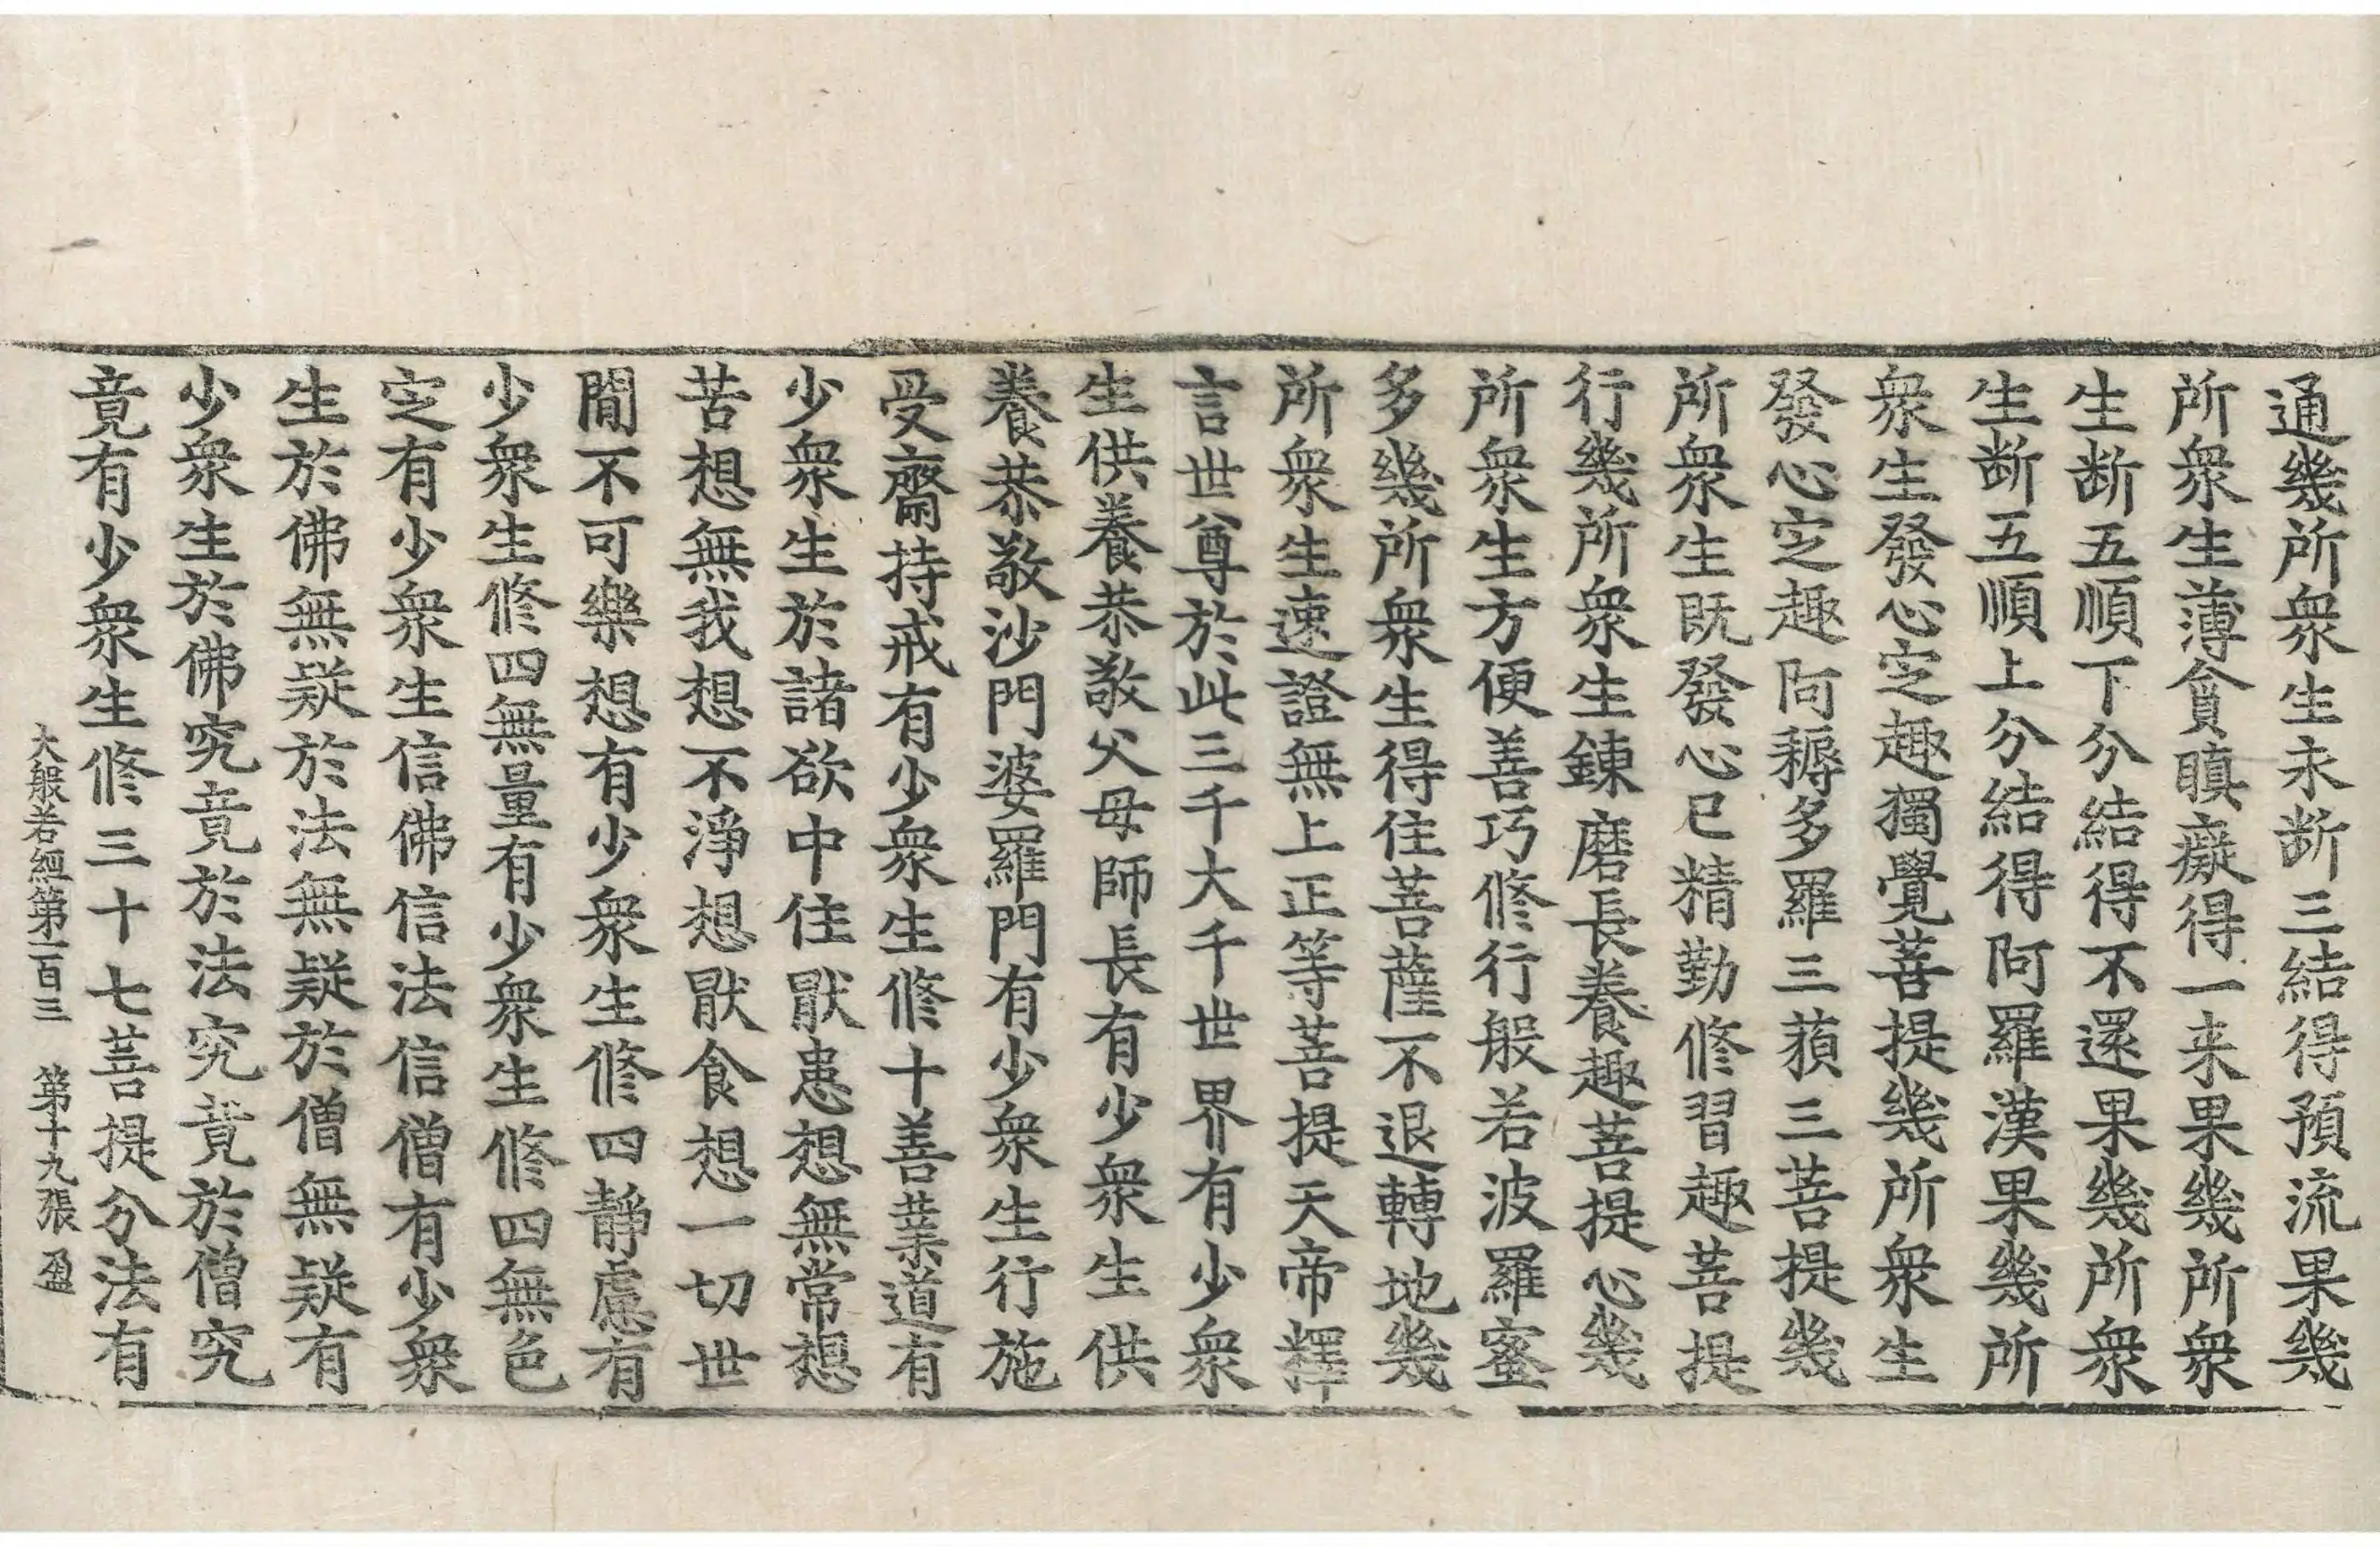 通幾所衆生永断三結得預流果幾
所衆生薄貪瞋癡得一来果幾所衆
生断五順下分結得不還果幾所衆
生断五順上分結得阿羅漢果幾所
衆生發心㝎趣獨覺菩提幾所衆生
發心㝎趣阿耨多羅三藐三菩提幾
所衆生既發心已精勤修習趣菩提
行幾所衆生鍊磨長養趣菩提心幾
所衆生方便善巧修行般若波羅蜜
多幾所衆生得住菩薩不退轉地幾
所衆生速證無上正等菩提天帝釋
言世尊於此三千大千世界有少衆
生供養恭敬父母師長有少衆生供
養恭敬沙門婆羅門有少衆生行施
受齋持戒有少衆生修十善業道有
少衆生於諸欲中住猒患想無常想
苦想無我想不淨想猒食想一切世
閒不可樂想有少衆生修四靜慮有
少衆生修四無量有少衆生修四無色
㝎有少衆生信佛信法信僧有少衆
生於佛無疑於法無疑於僧無疑有
少衆生於佛究竟於法究竟於僧究
竟有少衆生修三十七菩提分法有
大般若經第一百三　第十九張　盈